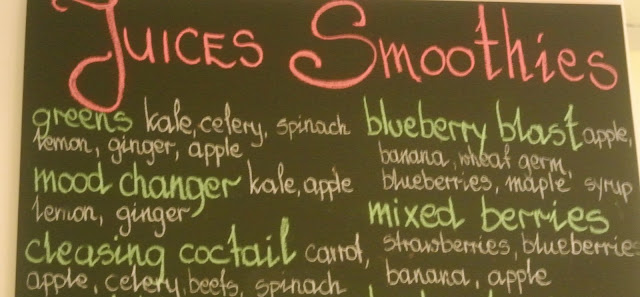 Juices
greens kale, celery, spinach
lemon, ginger, apple
mood changer kale, apple
lemon, ginger
cleasing coctail carrot,
apple, celery, beets, spinach
Smoothies
blueberry blast apple,
banana, wheat germ,
blueberries, maple syrup
mixed berries
strawberries, blueberries
banana, apple